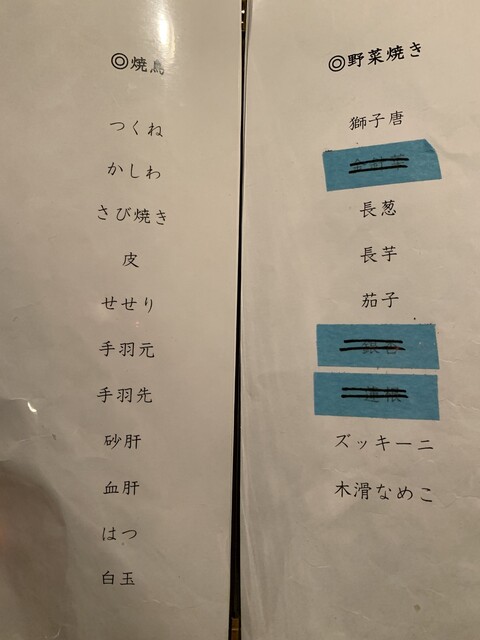 ◎焼鳥
つくね
かしわ
さび焼き
皮
せせり
手羽元
手羽先
砂肝
血肝
はつ
白玉
◎野菜焼き
獅子唐
長葱
長芋
茄子
蓮根
ズッキーニ
木滑なめこ